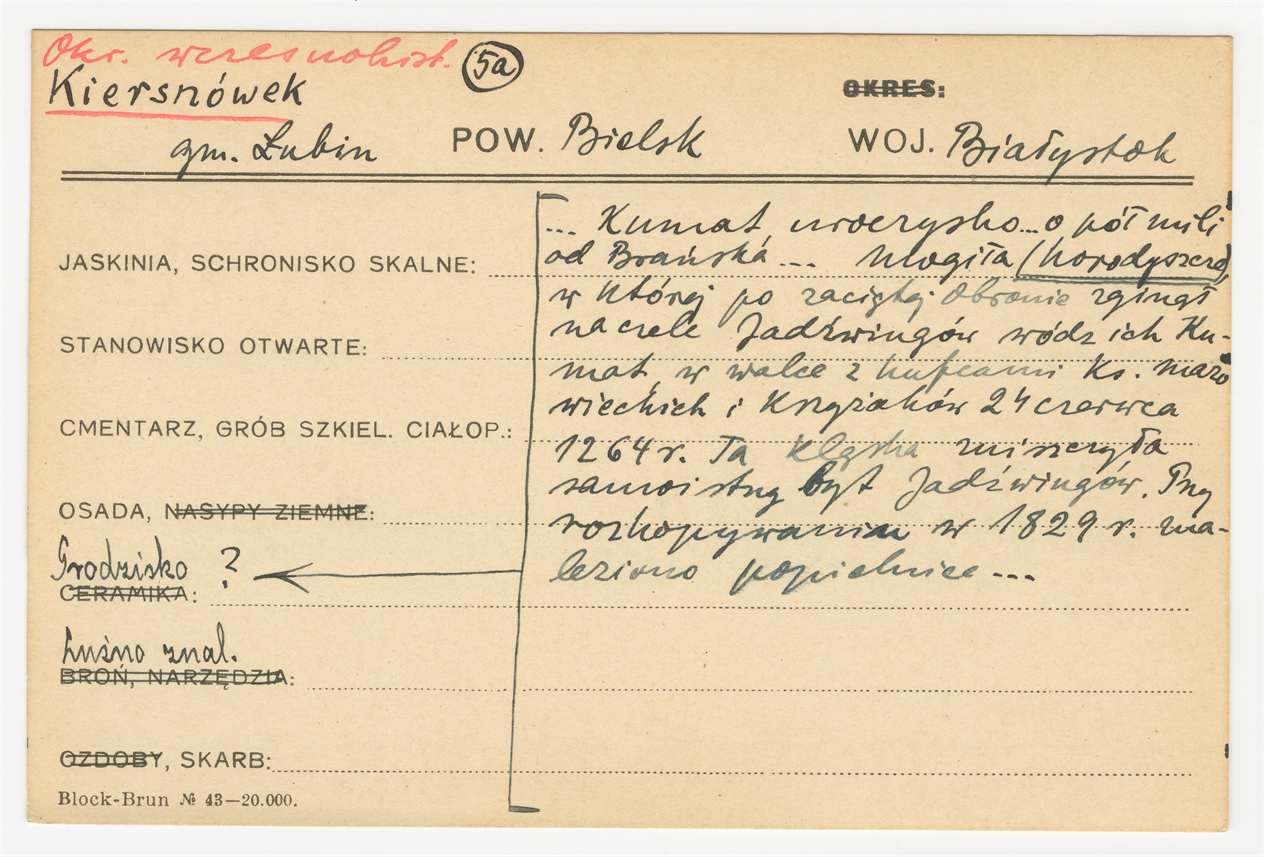 Okr. wczesnohist. 5a
Kiersnówek
OKRES:
gm. Łubin POW. Bielsk WOJ. Białystok
... Kumat, uroczysko... o pół mili
od Brańska ... Mogiła (horodyszcze)
JASKINIA, SCHRONISKO SKALNE:
w której po zaciętej obronie zginął
na czele Jadźwingów wódz ich Ku-
STANOWISKO OTWARTE:
mat, w walce z hufcami Ks. mazo
wieckich i Krzyżaków 24 czerwca
CMENTARZ, GRÓB SZKIEL. CIAŁOP.:
1264 r. Ta klęska zniszczyła
samoistny byt Jadźwingów. Przy
OSADA, NASYPY ZIEMNE:
rozkopywaniu w 1829 r. zna-
leziono popielnice ...
Grodzisko ?
CERAMIKA:
Luźno znal.
BROŃ, NARZĘDZIA:
OZDOBY, SKARB:
Block-Brun № 43—20.000.